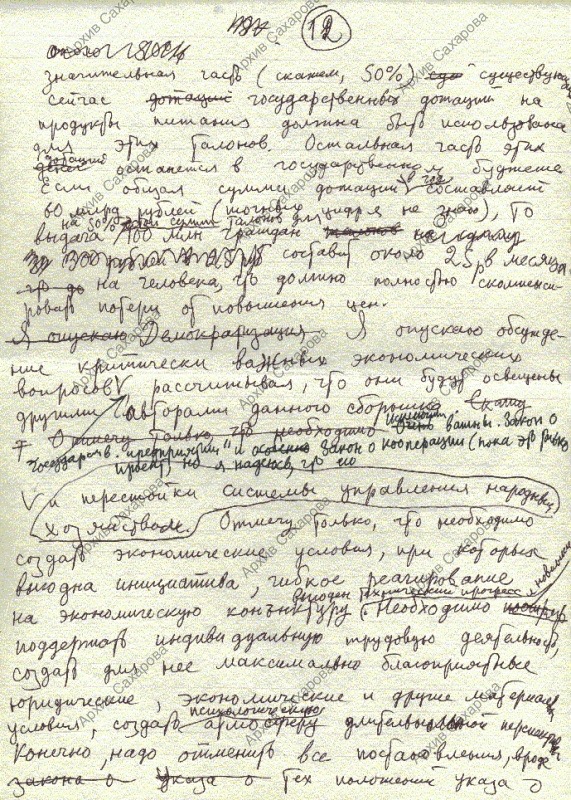 12
значительная часть (скажем, 50%) существующих
сейчас дотаций государственных дотаций на
продукты питания должна быть использована
для этих талонов. Остальная часть этих
дотаций останется в государственном бюджете
Если общая сумма дотаций составляет
60 млрд рублей (точных цифр я не знаю), то
на 50% этой суммы талонов для
выдача 100 млн граждан
составит около 25 р в месяц
на человека, что должно полностью скомпенси-
ровать потерю от повышения цен.
Я опускаю Демократизация Я опускаю обсужде-
ние критически важных экономических
вопросов V рассчитывая, что они будут освещены
другими авторами данного сборника
Отмечу только, что необходимо исключит. важны. Закон о
государств. "предприятии" и особенно Закон о кооперации (пока это только
проект, но я надеюсь, что
V и перестройки системы управления народным
хозяйством. Отмечу только, что необходимо
создать экономические условия, при которых
выгодна инициатива, гибкое реагирование
выгоден технический прогресс
на экономическую конъюнктуру. Необходимо
поддержать индивидуальную трудовую деятельность,
создать для нее максимально благоприятные
юридические, экономические и другие материальн
психологическую
условия, создать атмосферу длительной перспективы
Конечно, надо отменить все постановления, вроде
закона о Указа о тех положений указа о
Архив Сахарова